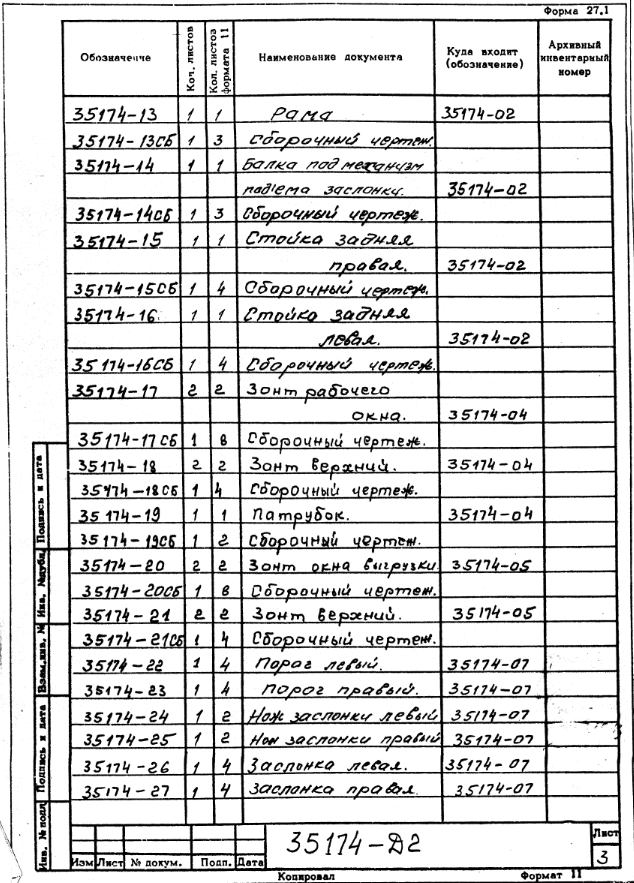 Форма 27.1
Обозначение Кол. листов Кол. листов формата 11 Наименование документа Куда входит (обозначение) Архивный инвентарный номер
35174-13 1 1 Рама 35174-02
35174-13СБ 1 3 Сборочный чертеж.
35174-14 1 1 Балка под механизм
подъема заслонки. 35174-02
35174-14СБ 1 3 Сборочный чертеж.
35174-15 1 1 Стойка задняя
правая. 35174-02
35174-15СБ 1 4 Сборочный чертеж.
35174-16. 1 1 Стойка задняя
левая. 35174-02
35174-16СБ 1 4 Сборочный чертеж.
35174-17 2 2 Зонт рабочего
окна. 35174-04
35174-17СБ 1 8 Сборочный чертеж.
35174-18 2 2 Зонт верхний. 35174-04
35174-18СБ 1 4 Сборочный чертеж.
35174-19 1 1 Патрубок. 35174-04
35174-19СБ 1 2 Сборочный чертеж.
35174-20 2 2 Зонт окна выгрузки 35174-05
35174-20СБ 1 8 Сборочный чертеж.
35174-21 2 2 Зонт верхний. 35174-05
35174-21СБ 1 4 Сборочный чертеж.
35174-22 1 4 Порог левый. 35174-07
35174-23 1 4 Порог правый. 35174-07
35174-24 1 2 Нож заслонки левый 35174-07
35174-25 1 2 Нож заслонки правый 35174-07
35174-26 1 4 Заслонка левая. 35174-07
35174-27 1 4 Заслонка правая. 35174-07
Инв. № подл Подпись и дата Взам.инв. № Инв. № дубл. Подпись и дата
35174-Д2
Лист
3
Изм Лист № докум. Подп. Дата
Копировал Формат 11